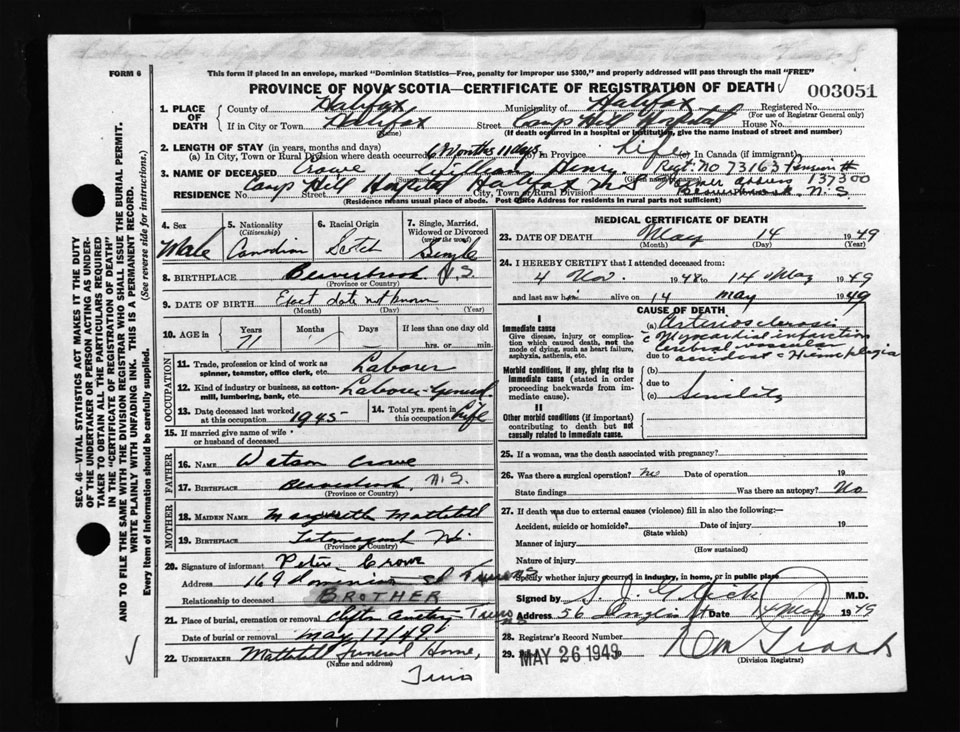 FORM 6
This form if placed in an envelope, marked "Dominion Statistics—Free, penalty for improper use $300," and properly addressed will pass through the mail "FREE"
PROVINCE OF NOVA SCOTIA—CERTIFICATE OF REGISTRATION OF DEATH
003051
1. PLACE OF DEATH
County of Halifax Municipality of Halifax Registered No.
(For use of Registrar General only)
If in City or Town Halifax Street Camp Hill Hospital House No.
(Name) (If death occurred in a hospital or institution, give the name instead of street and number)
2. LENGTH OF STAY (in years, months and days)
(a) In City, Town or Rural Division where death occurred 6 Months 11 days (b) In Province Life (c) In Canada (if immigrant)
3. NAME OF DECEASED Crowe William Regt. No 73163
RESIDENCE Camp Hill Hospital Halifax N S 137300
No. Street City, Town or Rural Division N.S.
(Residence means usual place of abode. Post Office Address for residents in rural parts not sufficient)
4. Sex
Male
5. Nationality
(Citizenship)
Canadian
6. Racial Origin
Scotch
7. Single, Married, Widowed or Divorced
(write the word)
Single
8. BIRTHPLACE Beaverbrook N.S.
(Province or Country)
9. DATE OF BIRTH Exact date not known
(Month) (Day) (Year)
10. AGE in
Years Months Days If less than one day old
71 / / hrs. or min.
OCCUPATION
11. Trade, profession or kind of work as spinner, teamster, office clerk, etc. Laborer
12. Kind of industry or business, as cotton-mill, lumbering, bank, etc. Laborer-General
13. Date deceased last worked at this occupation 1945
14. Total yrs. spent in this occupation Life
15. If married give name of wife or husband of deceased
FATHER
16. NAME Watson Crowe
17. BIRTHPLACE Beaverbrook, N.S.
(Province or Country)
MOTHER
18. MAIDEN NAME Mattatall
19. BIRTHPLACE Tatamagouche N.S.
(Province or Country)
20. Signature of informant Peter Crowe
Address 169 Dominion St Truro NS
Relationship to deceased BROTHER
21. Place of burial, cremation or removal Clifton Cemetery Truro NS
Date of burial or removal May 17/49
22. UNDERTAKER Mattatall Funeral Home,
(Name and address)
Truro
MEDICAL CERTIFICATE OF DEATH
23. DATE OF DEATH May 14 1949
(Month) (Day) (Year)
24. I HEREBY CERTIFY that I attended deceased from:
4 Nov. 1948 to 14 May 1949
and last saw him alive on 14 May 1949
CAUSE OF DEATH
I
Immediate cause
Give disease, injury or complication which caused death, not the mode of dying, such as heart failure, asphyxia, asthenia, etc.
(a) Arteriosclerosis
c Myocardial infarction
cerebral vascular
due to accident c Hemiplegia
Morbid conditions, if any, giving rise to immediate cause (stated in order proceeding backwards from immediate cause).
(b)
due to
(c) Senility
II
Other morbid conditions (if important) contributing to death but not causally related to immediate cause.
25. If a woman, was the death associated with pregnancy?
26. Was there a surgical operation? No Date of operation 19
State findings Was there an autopsy? No
27. If death was due to external causes (violence) fill in also the following:—
Accident, suicide or homicide? Date of injury 19
(State which)
Manner of injury
(How sustained)
Nature of injury
Specify whether injury occurred in industry, in home, or in public place
Signed by M.D.
Address 56 Inglis St Date 14 May 1949
28. Registrar's Record Number
29. MAY 26 1949
(Division Registrar)
SEC. 46—VITAL STATISTICS ACT MAKES IT THE DUTY
OF THE UNDERTAKER OR PERSON ACTING AS UNDERTAKER TO OBTAIN ALL THE PARTICULARS REQUIRED
IN THE "CERTIFICATE OF REGISTRATION OF DEATH"
AND TO FILE THE SAME WITH THE DIVISION REGISTRAR WHO SHALL ISSUE THE BURIAL PERMIT.
WRITE PLAINLY WITH UNFADING INK. THIS IS A PERMANENT RECORD.
Every item of information should be carefully supplied. (See reverse side for instructions.)